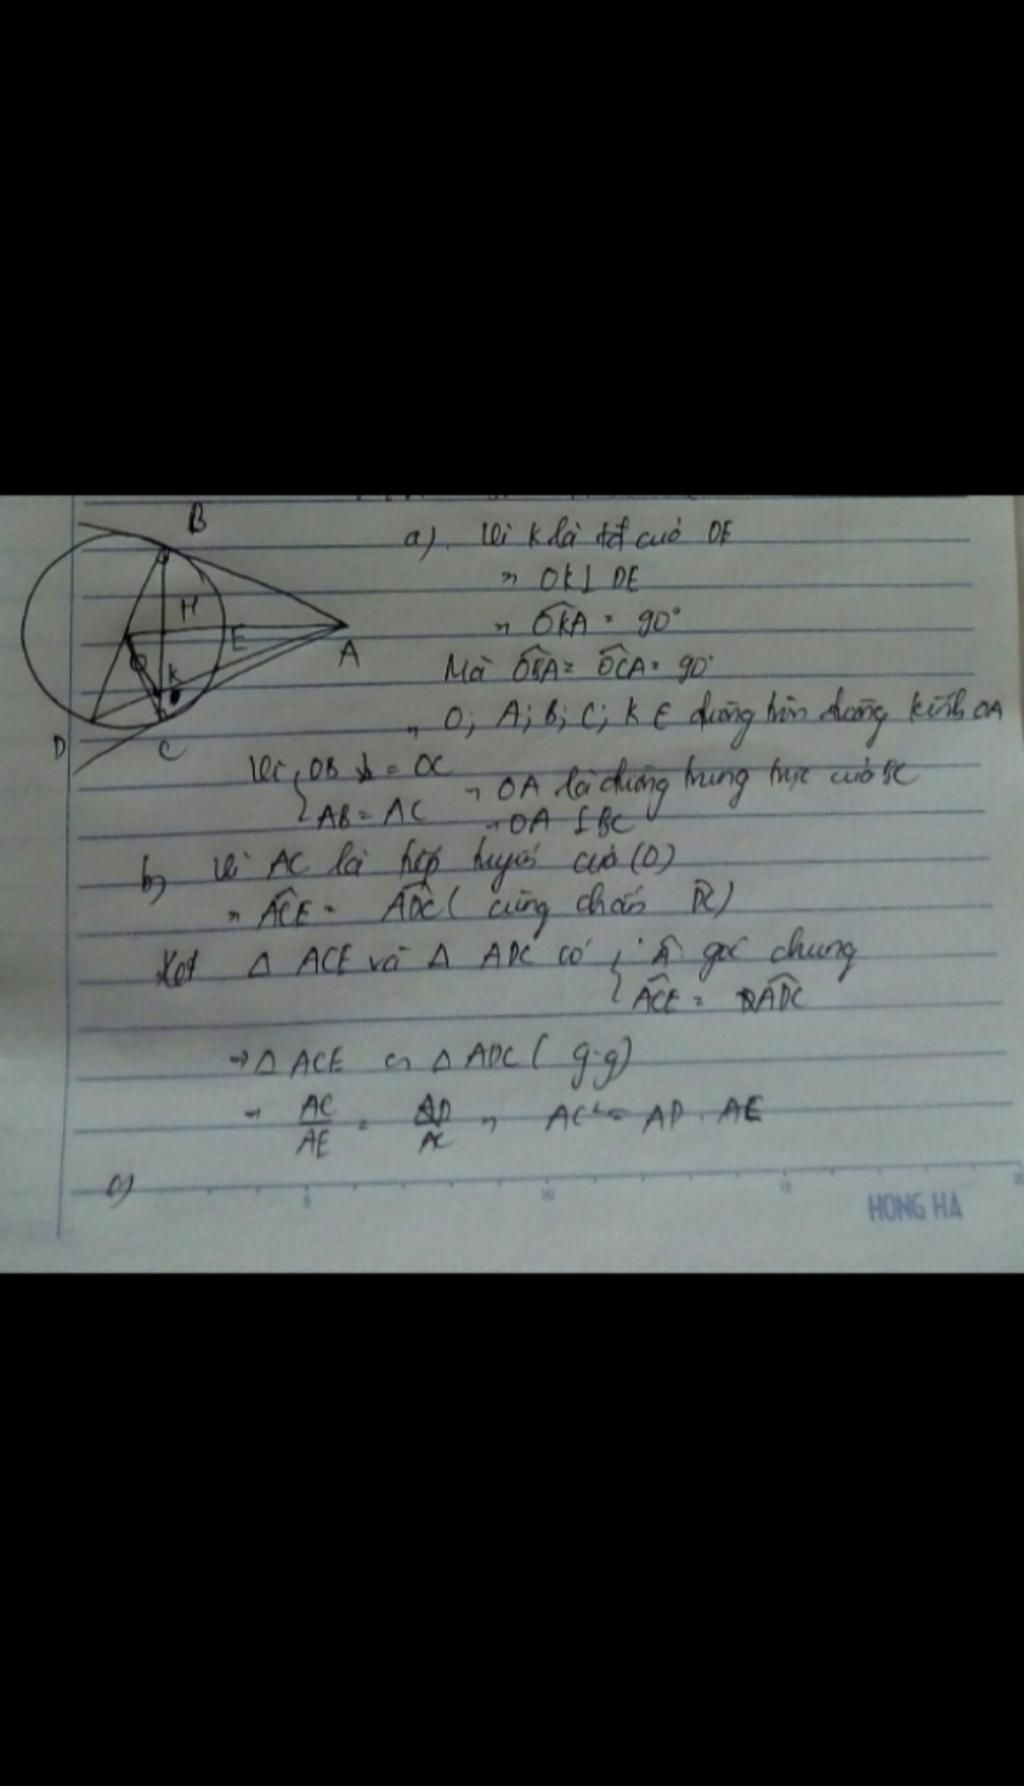 B
H
E
A
O
K
D
C
a). Vì K là tđ của DE
→ OK⊥ DE
→ OKA = 90°
Mà OBA = OCA = 90°
→ O; A; B; C; K ∈ đường tròn đường kính OA
Vì { OB = OC → OA là đường trung trực của BC
AB = AC → OA ⊥ BC
b) Vì AC là tiếp tuyến của (O)
→ ACE = ADC ( cùng chắn )
Xét Δ ACE và Δ ADC có { : Â góc chung
ACE = ADC
→ Δ ACE ∽ Δ ADC ( g.g)
→ AC/AE = AD/AC → AC² = AD . AE
c)
10
HONG HA